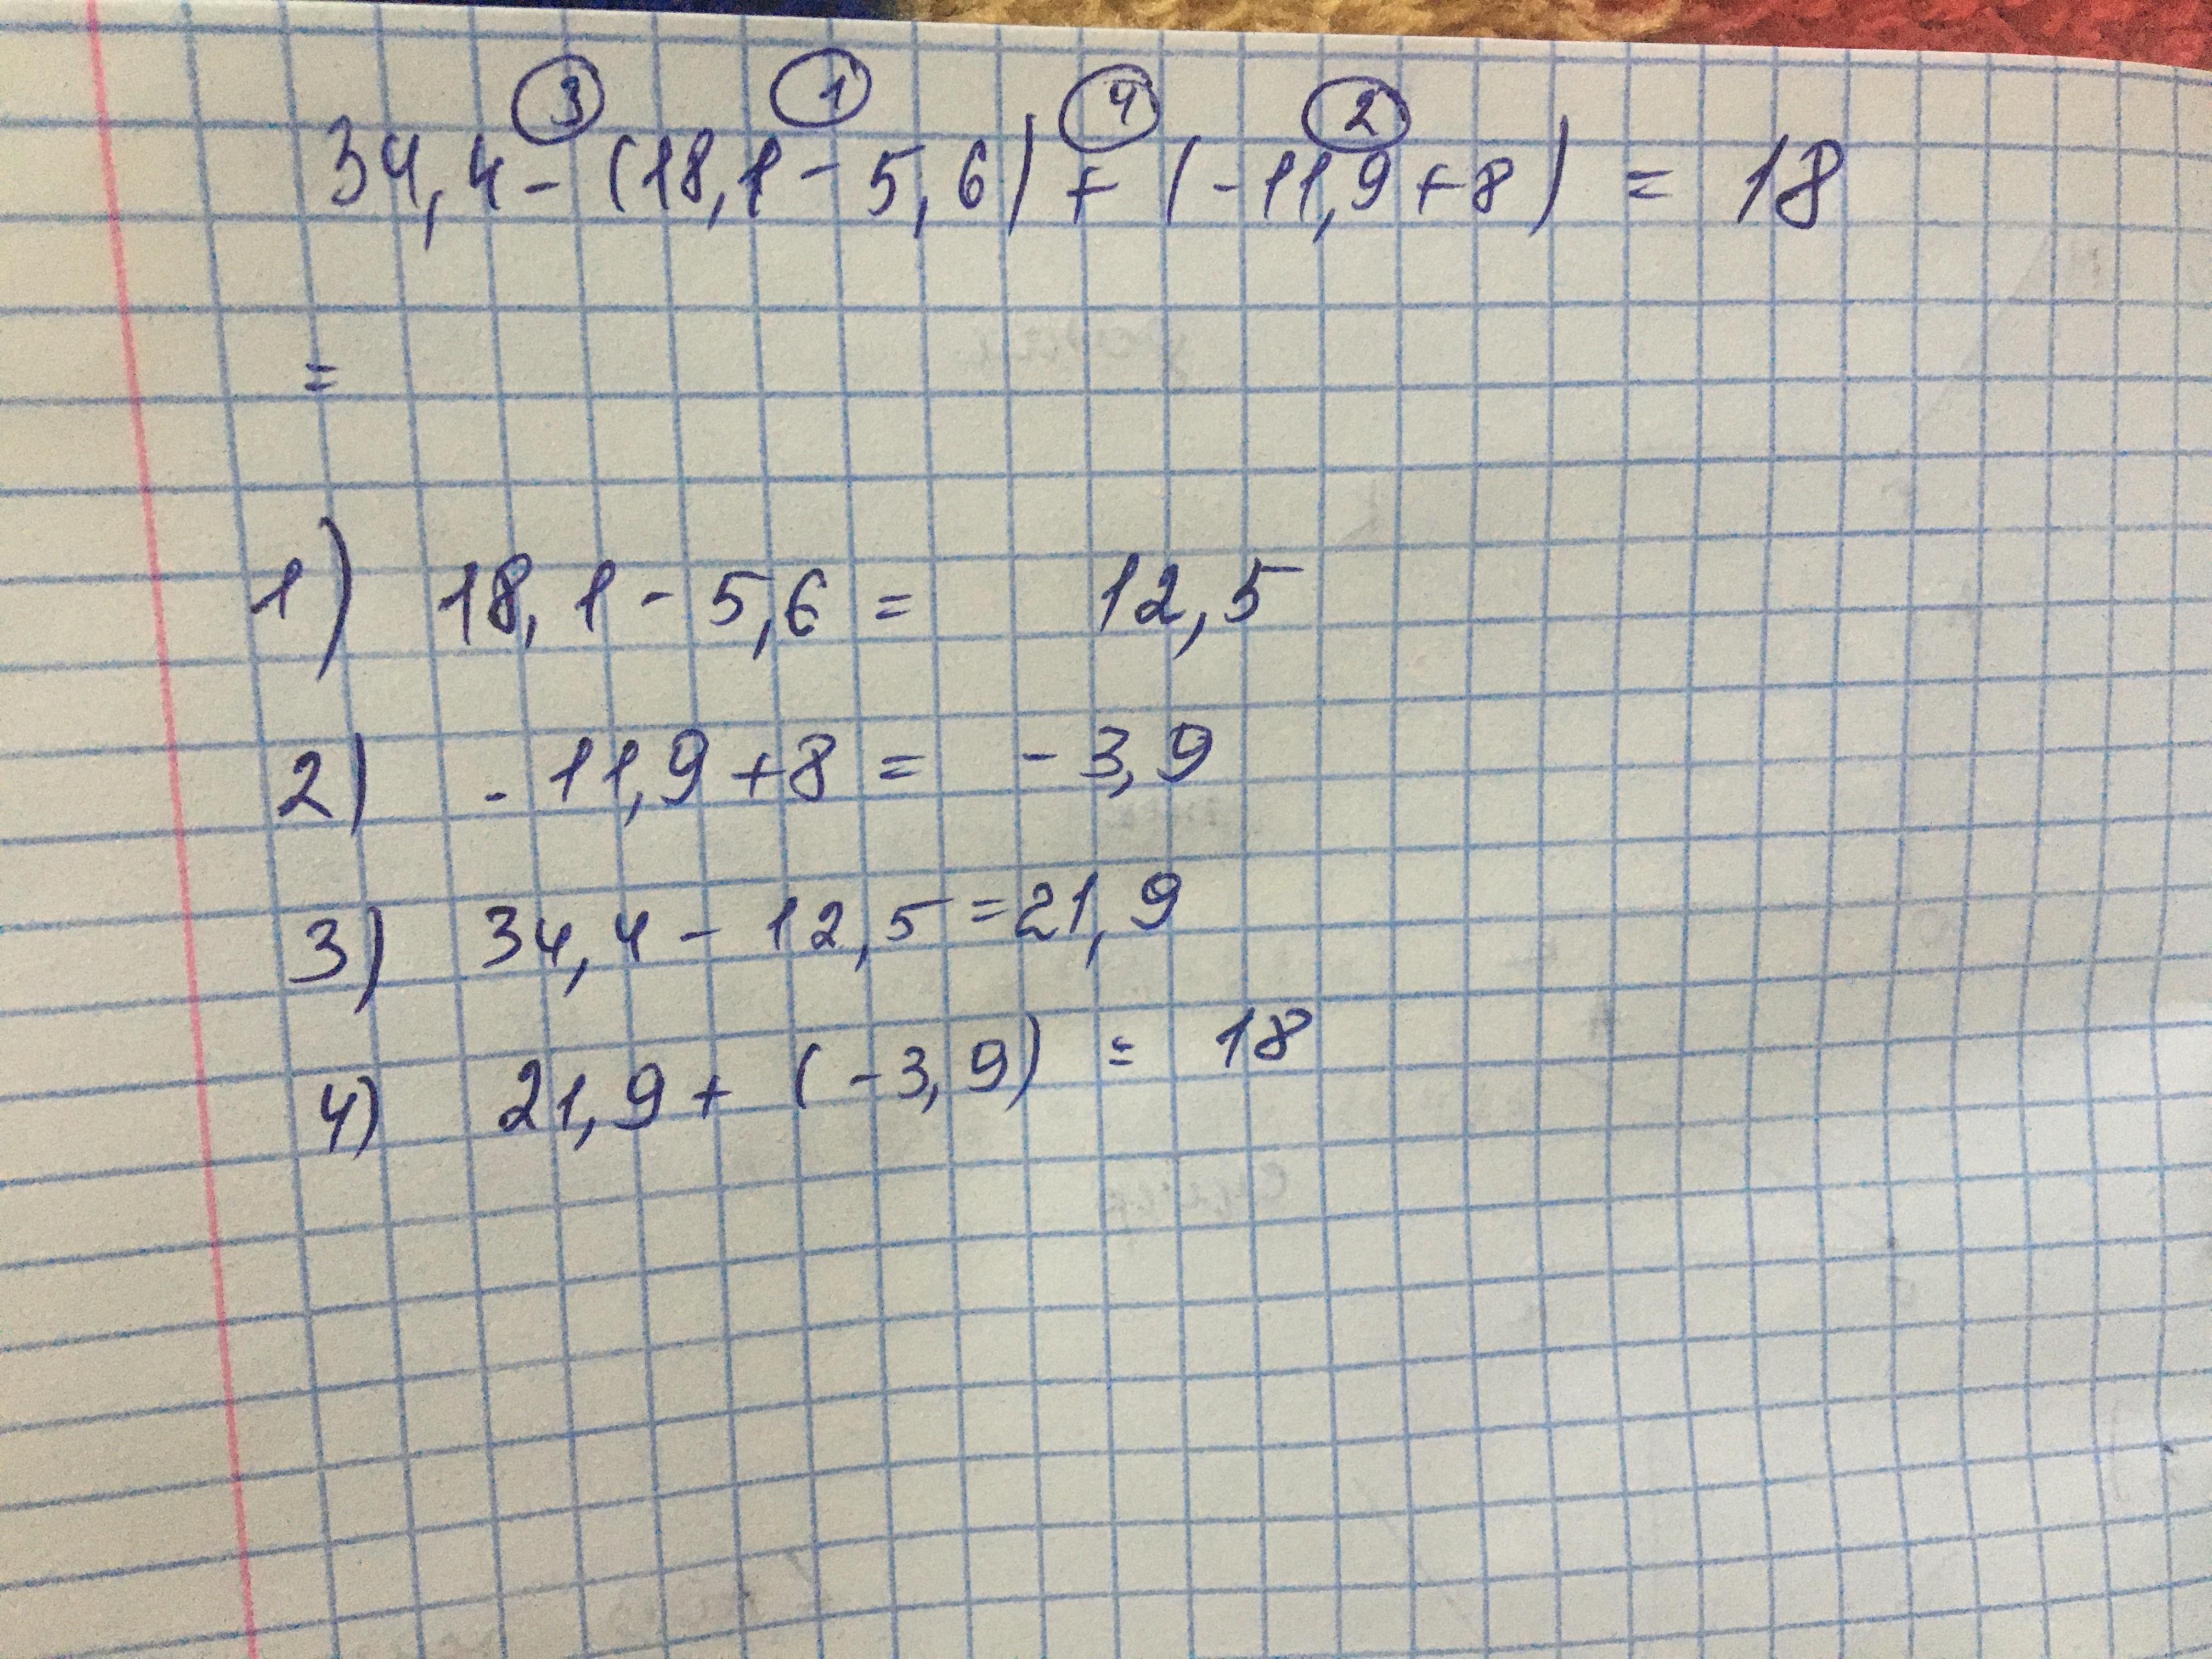 3 1 4 2
34,4 - (18,1 - 5,6) + (-11,9 + 8) = 18
=
1) 18,1 - 5,6 = 12,5
2) - 11,9 + 8 = - 3,9
3) 34,4 - 12,5 = 21,9
4) 21,9 + (-3,9) = 18